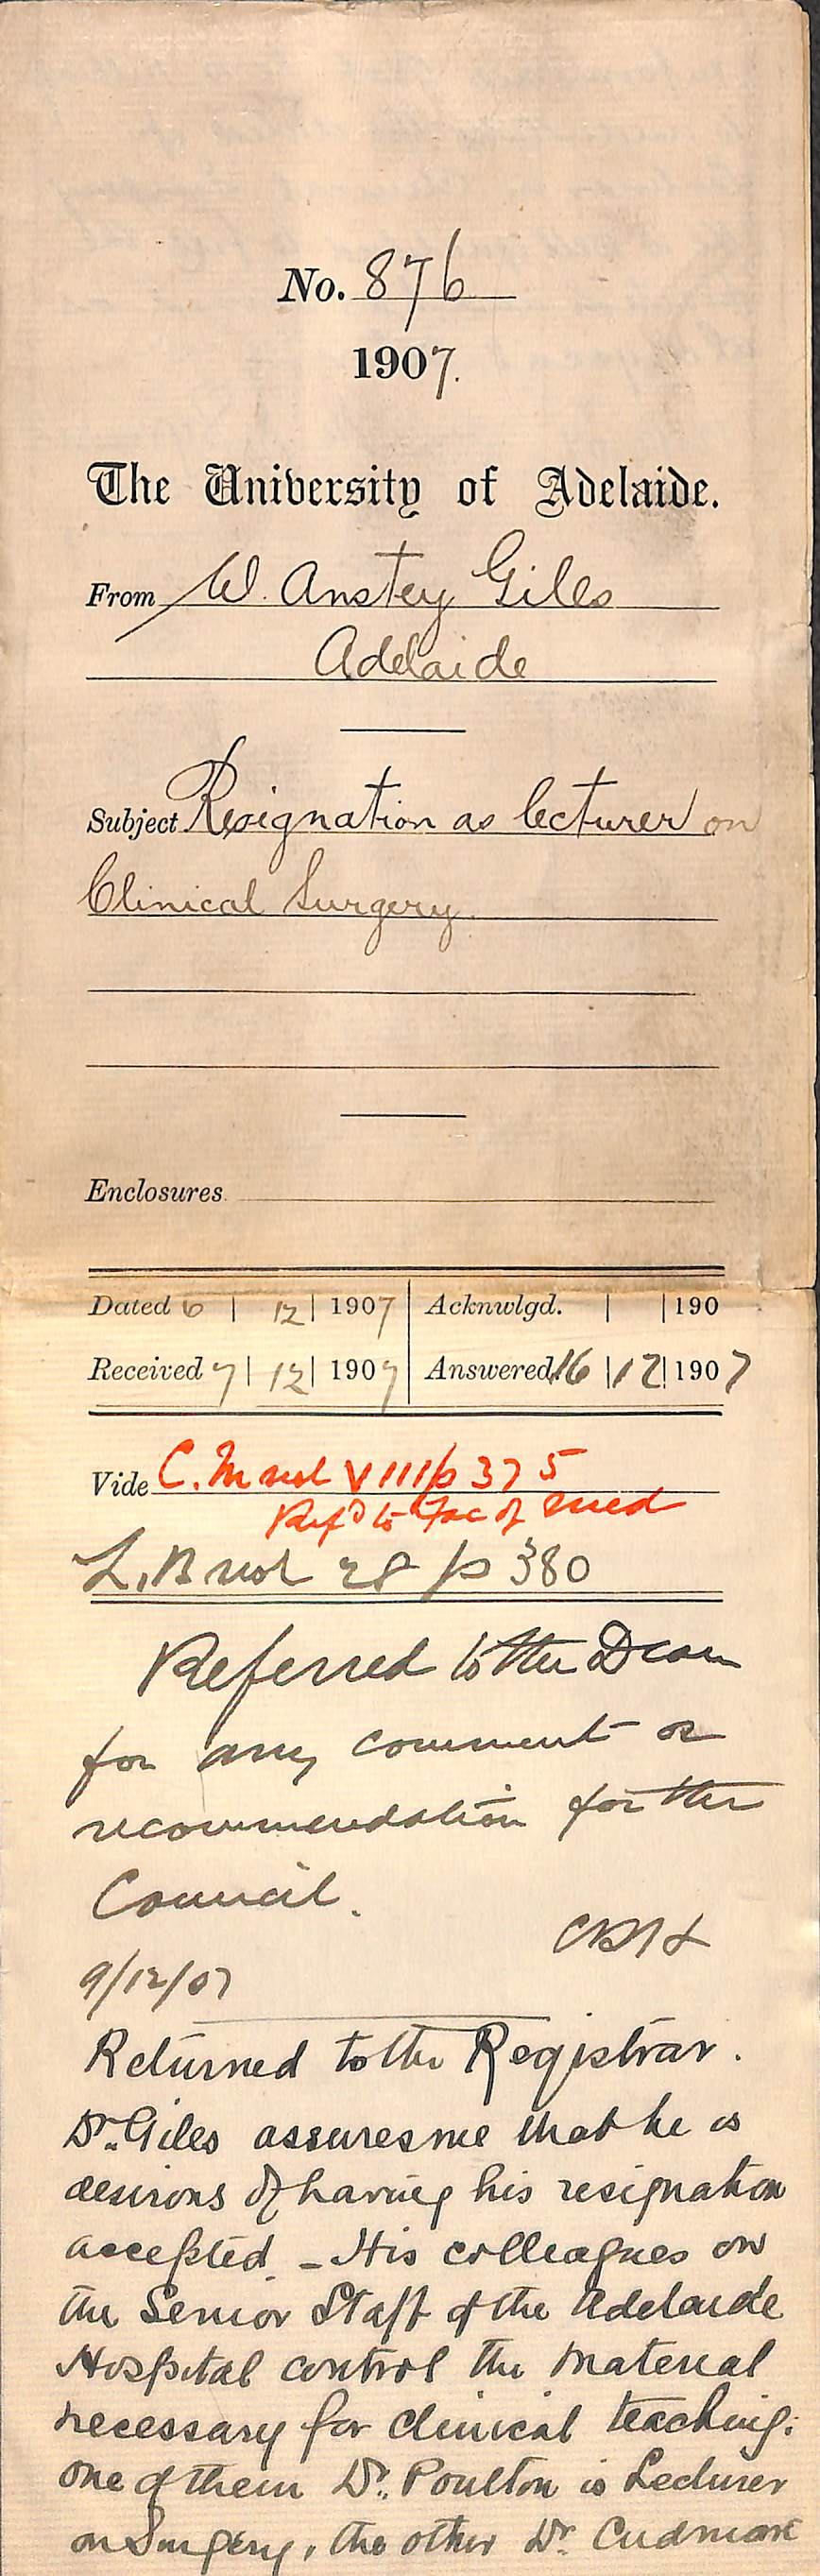 No. 876
1907.
The University of Adelaide.
From W. Anstey Giles
Adelaide
Subject Resignation as lecturer on
Clinical Surgery.
Enclosures
Dated 6 | 12 | 1907 Acknwlgd. | | 190
Received 7 | 12 | 1907 Answered 16 | 12 | 1907
Vide C. M vol VIII/p 375
Refd to Fac of Med
L.B vol 28 /p 380
Referred to the Dean
for any comment or
recommendation for the
Council.
9/12/07
Returned to the Registrar.
Dr. Giles assures me that he is
desirous of having his resignation
accepted – His colleagues on
the Senior Staff of the Adelaide
Hospital control the material
necessary for clinical teaching:
one of them Dr. Poulton is Lecturer
on Surgery, the other Dr. Cudmore